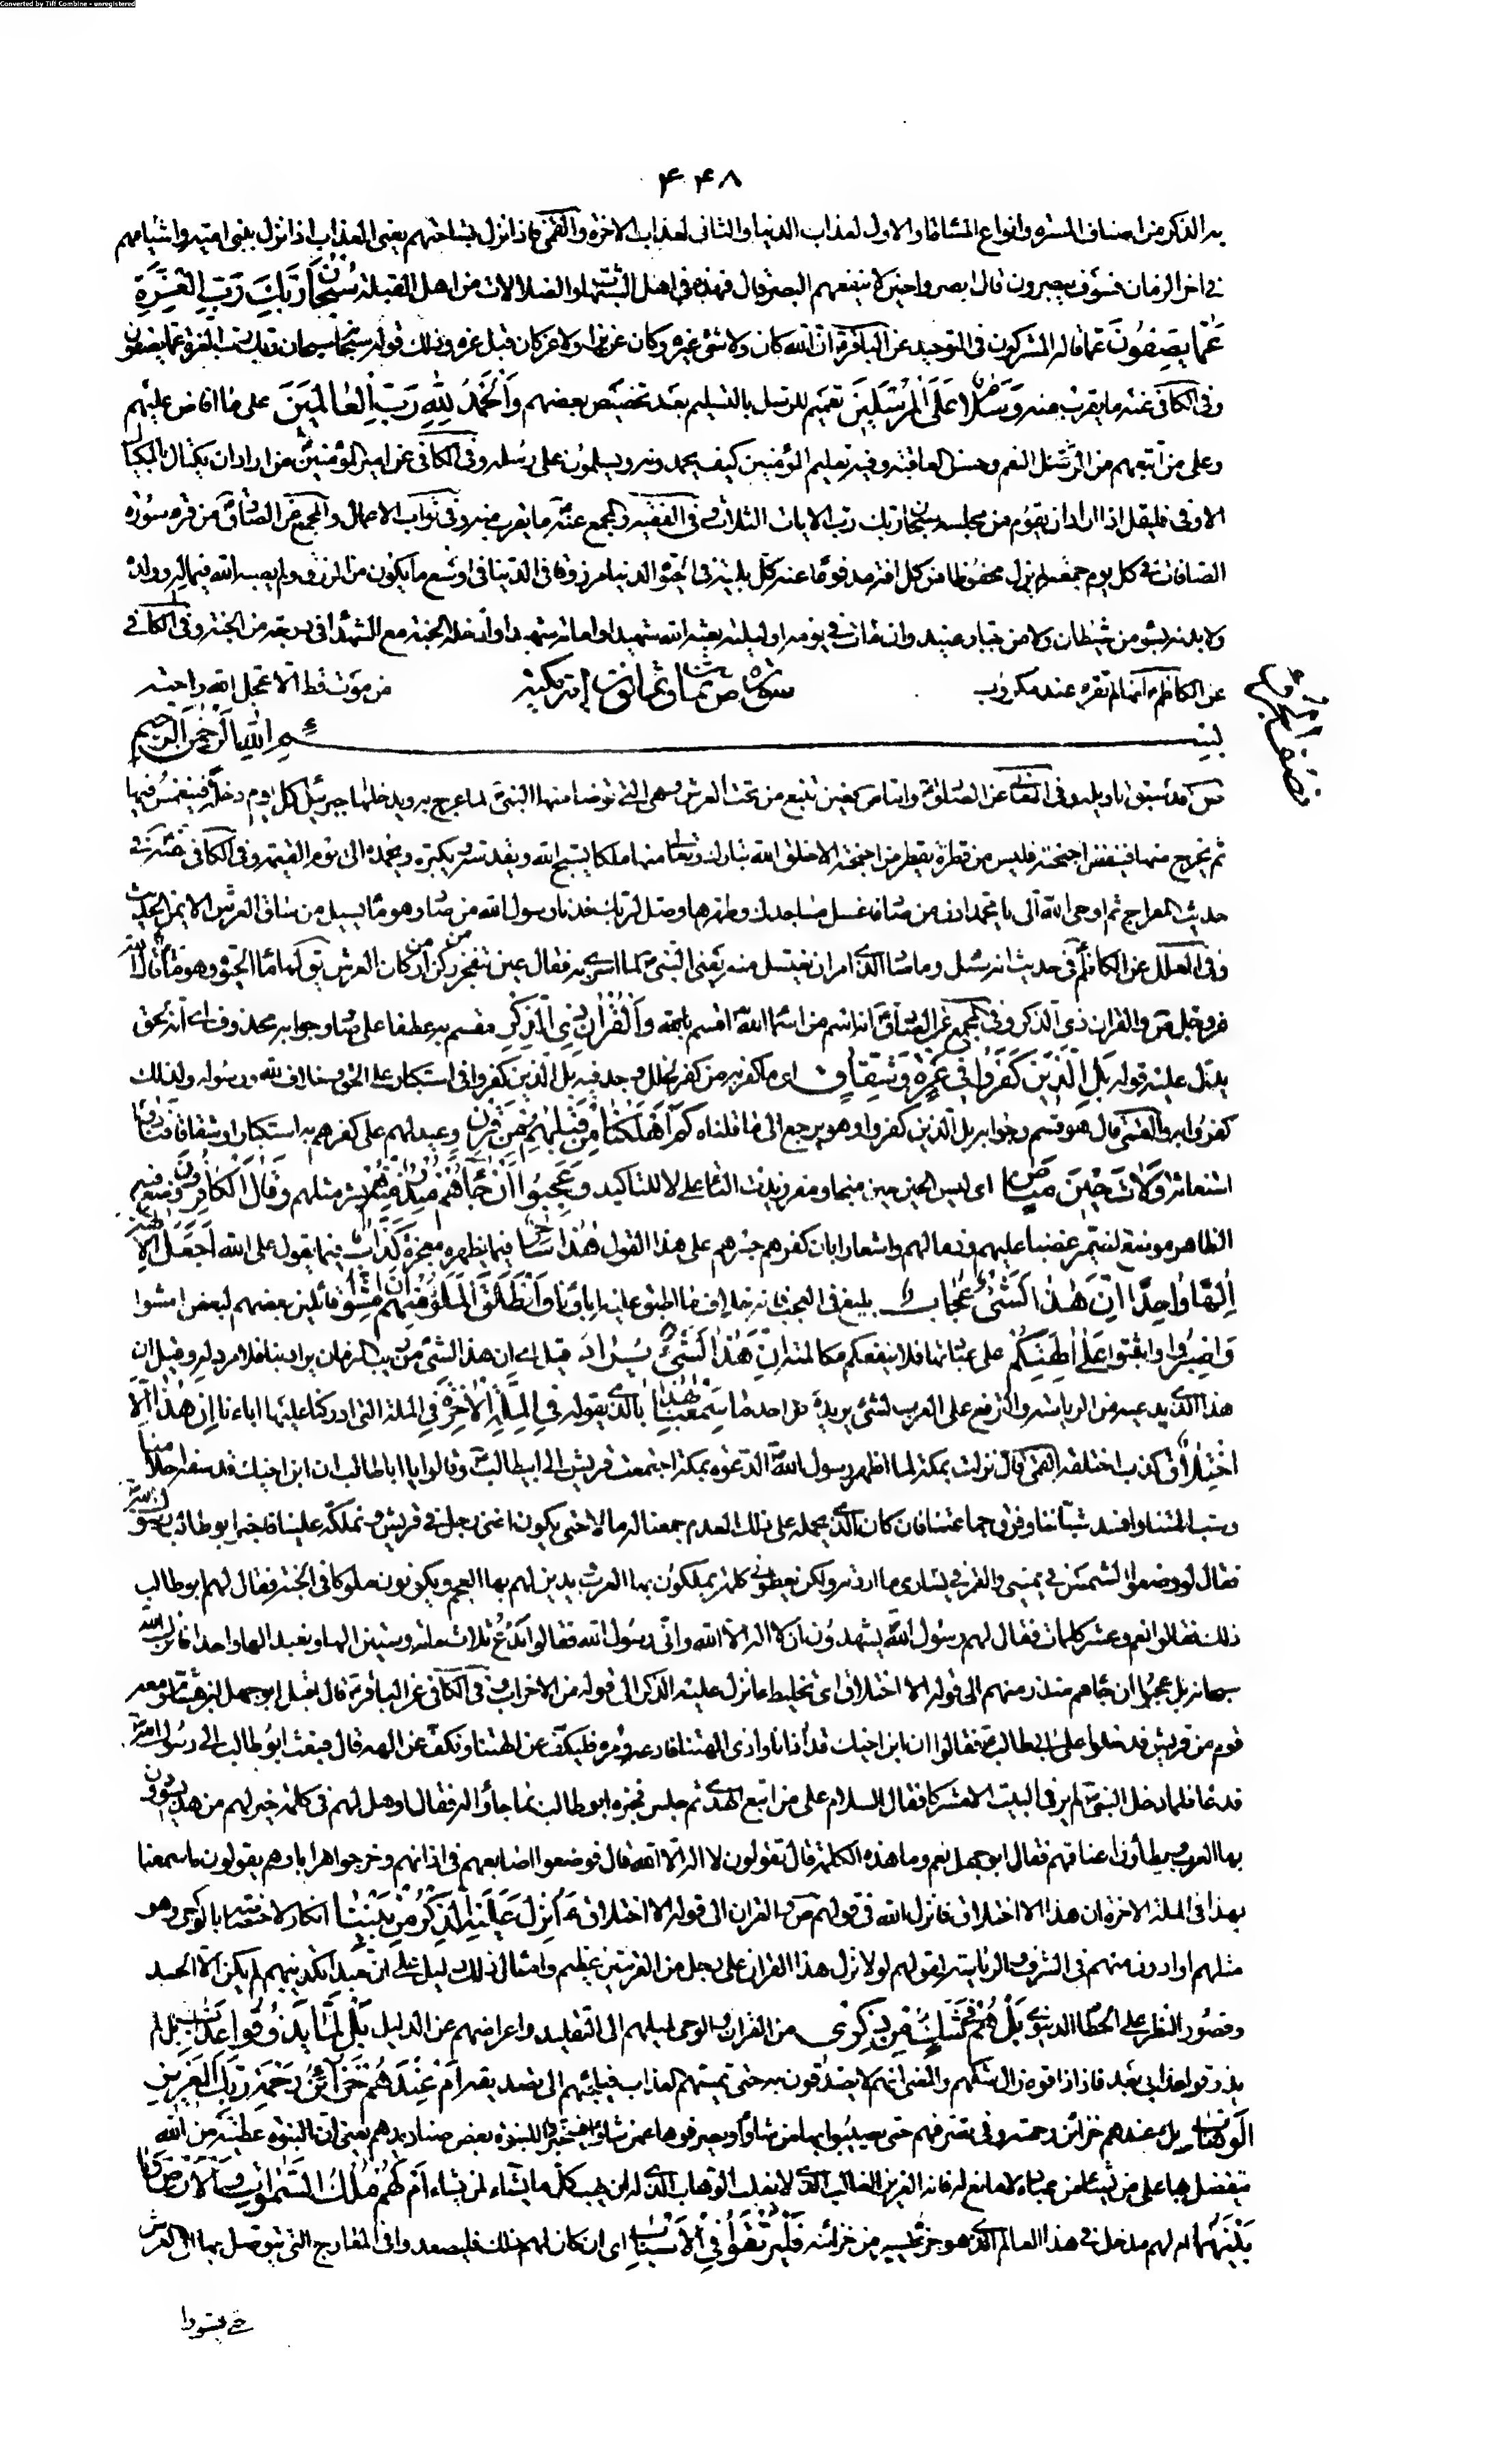 Converted by Tiff Combine - unregistered
۴۴۸
به الذكر من اصناف المسرة وانواع المساءة او الاول لعذاب الدنيا والثانى لعذاب الاخرة والقمى فاذا نزل بساحتهم يعنى العذاب اذا نزل ببنى امية واشياعهم
فى اخر الزمان فسوف يبصرون قال ابصروا حين لا ينفعهم البصر قال فهذه فى اهل الشبهات والضلالات من اهل القبلة سُبْحانَ رَبِّكَ رَبِّ الْعِزَّةِ
عَمَّا يَصِفُونَ عما قاله المشركون فى التوحيد عن الباقر ان الله كان ولا شئ غيره وكان عزيزا ولا عز كان قبل عزه وذلك قوله سبحانه سبحان ربك رب العزة عما يصفون
وفى الكافى عنه ما يقرب منه وَسَلامٌ عَلَى الْمُرْسَلِينَ تعميم للرسل بالتسليم بعد تخصيص بعضهم وَالْحَمْدُ لِلّهِ رَبِّ الْعالَمِينَ على ما افاض عليهم
وعلى من اتبعهم من الرسل النعم وحسن العاقبة وفيه تعليم المؤمنين كيف يحمدونه ويسلمون على رسله وفى الكافى عن امير المؤمنين من اراد ان يكتال بالمكيال
الاوفى فليقل اذا اراد ان يقوم من مجلسه سبحان ربك رب الايات الثلاث وفى الفقيه والمجمع عنه ما يقرب منه وفى ثواب الاعمال والمجمع عن الصادق من قرء سورة
الصافات فى كل يوم جمعة لم يزل محفوظا من كل افة مدفوعا عنه كل بلية فى الحيوة الدنيا مرزوقا فى الدنيا فى اوسع ما يكون من الرزق ولم يصبه الله فى ماله وولده
ولا بدنه بسوء من شيطان ولا من جبار عنيد وان مات فى يومه او ليلته بعثه الله شهيدا واماته شهيدا وادخله الجنة مع الشهداء فى درجة من الجنة وفى الكافى
عن الكاظم انها لم تقرء عند مكروب من موت قط الا عجل الله راحته
سورة ص ثمان وثمانون اية مكية
بسم الله الرحمن الرحيم
ص قد سبق تاويله وفى المعانى عن الصادق واما ص فعين تنبع من تحت العرش وهى التى توضأ منها النبى لما عرج به ويدخلها جبرئيل كل يوم دخلة فينغمس فيها
ثم يخرج منها فينفض اجنحته فليس من قطرة يقطر من اجنحته الا خلق الله تبارك وتعالى منها ملكا يسبح الله ويقدسه ويكبره ويحمده الى يوم القيمة وفى الكافى عنه فى
حديث المعراج ثم اوحى الله الى يا محمد ادن من صاد فاغسل مساجدك وطهرها وصل لربك فدنا رسول الله من صاد وهو ماء يسيل من ساق العرش الايمن الحديث
وفى العلل عن الكاظم فى حديث انه سئل وما صاد الذى امر ان يغتسل منه يعنى النبى لما اسرى به فقال عين تنفجر من ركن من اركان العرش يق لها ماء الحيوة وهو ما قال الله
عز وجل ص والقران ذى الذكر وفى المجمع عن الصادق انه اسم من اسماء الله اقسم به وَالْقُرْآنِ ذِى الذِّكْرِ مقسم به عطفا على صاد وجوابه محذوف اى انه لحق
يدل عليه قوله بَلِ الَّذِينَ كَفَرُوا فِى عِزَّةٍ وَشِقاقٍ اى ما كفر به من كفر لخلل وجد فيه بل الذين كفروا فى استكبار على الحق وخلاف لله ورسوله ولذلك
كفروا به والقمى قال هو قسم وجوابه بل الذين كفروا وهو يرجع الى ما قلناه كَمْ أَهْلَكْنا مِنْ قَبْلِهِمْ مِنْ قَرْنٍ وعيد لهم على كفرهم به استكبارا وشقاقا فَنادَوْا
استغاثة وَلاتَ حِينَ مَناصٍ اى ليس الحين حين منجا ومفر زيدت التاء على لا للتاكيد وَعَجِبُوا أَنْ جاءَهُمْ مُنْذِرٌ مِنْهُمْ بشر مثلهم وَقالَ الْكافِرُونَ وضع فيه
الظاهر موضع الضمير غضبا عليهم وذما لهم واشعارا بان كفرهم جسرهم على هذا القول هذا ساحِرٌ فيما يظهره معجزة كَذّابٌ فيما يقول على الله أَجَعَلَ الْآلِهَةَ
إِلهاً واحِداً إِنَّ هذا لَشَيْءٌ عُجابٌ بليغ فى العجب فانه خلاف ما اطبق عليه اباؤنا وَانْطَلَقَ الْمَلَأُ مِنْهُمْ أَنِ امْشُوا قائلين بعضهم لبعض امشوا
وَاصْبِرُوا واثبتوا عَلى آلِهَتِكُمْ على عبادتها فلا ينفعكم مكالمته إِنَّ هذا لَشَيْءٌ يُرادُ قيل اى ان هذا الشئ من ريب الزمان يراد بنا فلا مرد له وقيل ان
هذا الذى يدعيه من الرياسة والترفع على العرب لشئ يريده كل احد ما سَمِعْنا بِهذا بالذى يقوله فِى الْمِلَّةِ الْآخِرَةِ فى الملة التى ادركنا عليها اباءنا إِنْ هذا إِلَّا
اخْتِلاقٌ كذب اختلقه القمى قال نزلت بمكة لما اظهر رسول الله الدعوة بمكة اجتمعت قريش الى ابيطالب وقالوا يا ابا طالب ان ابن اخيك قد سفه احلامنا
وسب الهتنا وافسد شباننا وفرق جماعتنا فان كان الذى يحمله على ذلك العدم جمعنا له مالا حتى يكون اغنى رجل فى قريش ونملكه علينا فاخبر ابو طالب رسول الله
فقال لو وضعوا الشمس فى يمينى والقمر فى يسارى ما اردته ولكن يعطونى كلمة يملكون بها العرب ويدين لهم بها العجم ويكونون ملوكا فى الجنة فقال لهم ابو طالب
ذلك فقالوا نعم وعشر كلمات فقال لهم رسول الله تشهدون ان لا اله الا الله وانى رسول الله فقالوا ندع ثلاثمائة وستين الها ونعبد الها واحدا فانزل الله
سبحانه بل عجبوا ان جاءهم منذر منهم الى قوله الا اختلاق اى تخليط ءانزل عليه الذكر الى قوله من الاحزاب وفى الكافى عن الباقر قال اقبل ابو جهل بن هشام ومعه
قوم من قريش فدخلوا على ابى طالب فقالوا ان ابن اخيك قد اذانا واذى الهتنا فادعه ومره فليكف عن الهتنا ونكف عن الهه قال فبعث ابو طالب الى رسول الله
فدعاه فلما دخل النبى لم ير فى البيت الا مشركا فقال السلام على من اتبع الهدى ثم جلس فخبره ابو طالب بما جاؤا له فقال او هل لهم فى كلمة خير لهم من هذا يسودون
بها العرب ويطأون اعناقهم فقال ابو جهل نعم وما هذه الكلمة قال تقولون لا اله الا الله قال فوضعوا اصابعهم فى اذانهم وخرجوا هرابا وهم يقولون ما سمعنا
بهذا فى الملة الاخرة ان هذا الا اختلاق فانزل الله فى قولهم ص والقران الى قوله الا اختلاق ءَأُنْزِلَ عَلَيْهِ الذِّكْرُ مِنْ بَيْنِنا انكار لاختصاصه بالوحى وهو
مثلهم او ادون منهم فى الشرف والرياسة لقولهم لولا نزل هذا القران على رجل من القريتين عظيم وامثال ذلك دليل على ان مبدأ تكذيبهم لم يكن الا الحسد
وقصور النظر على الحطام الدنيوى بَلْ هُمْ فِى شَكٍّ مِنْ ذِكْرِى من القران والوحى لميلهم الى التقليد واعراضهم عن الدليل بَلْ لَمّا يَذُوقُوا عَذابِ بل لم
يذوقوا عذابى بعد فاذا ذاقوه زال شكهم والمعنى انهم لا يصدقون به حتى يمسهم العذاب فيلجئهم الى تصديقه أَمْ عِنْدَهُمْ خَزائِنُ رَحْمَةِ رَبِّكَ الْعَزِيزِ
الْوَهّابِ بل ءعندهم خزائن رحمته وفى تصرفهم حتى يصيبوا بها من شاؤا ويصرفوها عمن شاؤا فيتخيروا للنبوة بعض صناديدهم يعنى ان النبوة عطية من الله
يتفضل بها على من يشاء من عباده لا مانع له فانه العزيز الغالب الذى لا يغلب الوهاب الذى له ان يهب كل ما يشاء لمن يشاء أَمْ لَهُمْ مُلْكُ السَّمواتِ وَالْأَرْضِ وَما
بَيْنَهُما ام لهم مدخل فى هذا العالم الذى هو جزء يسير من خزائنه فَلْيَرْتَقُوا فِى الْأَسْبابِ اى ان كان لهم ذلك فليصعدوا فى المعارج التى يتوصل بها الى العرش
حتى يستووا